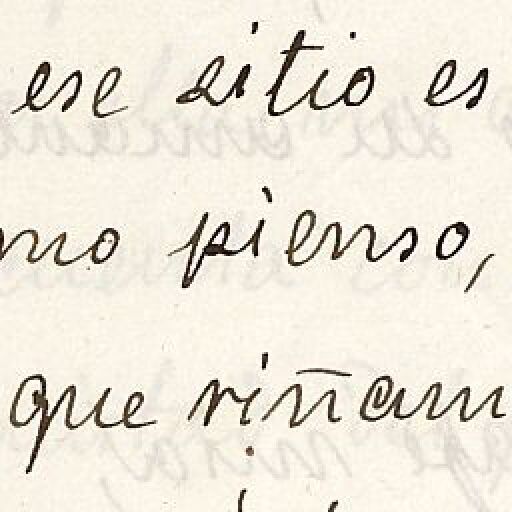 ese sitio es
mo pienso,
que riñam